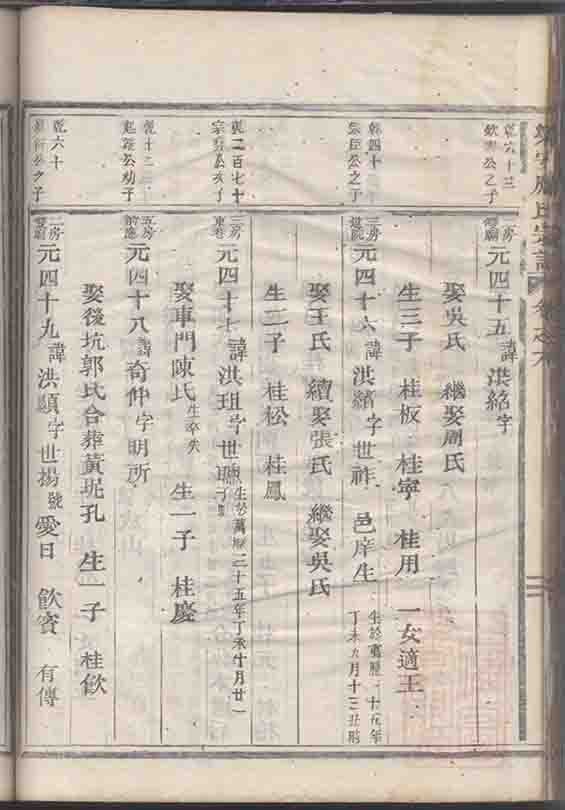 乾六十三
欽 公之子
房
元四十五諱洪紹字
娶吳氏 繼娶周氏
生三子 桂板 桂寧 桂用 一女適王
乾四十
公之子
三房
元四十六諱洪纘字世祚 邑庠生 生於萬曆 十五年
丁未九月十三丑時
娶王氏 續娶張氏 繼娶吳氏
生二子 桂松 桂鳳
乾二百七十
宗 公次子
三房
東巷
元四十七諱洪珇字世聰 生於萬曆二十五年丁酉十月廿一
娶車門陳氏 生卒失 生一子 桂慶
乾十二
公幼子
五房
前應
元四十八諱奇仲字明所
娶後坑郭氏合葬黃坭孔 生一子 桂欽
乾六十
公之子
二房
元四十九諱洪顯字世揚號愛日 飲賓 有傳